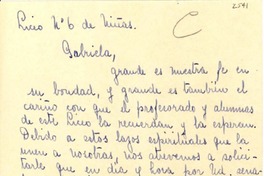 2541
C
Liceo Nº 6 de Niñas.
Gabriela,
grande es nuestra fe en
su bondad, y grande es también el
cariño con que el profesorado y alumnas
de este Liceo la recuerdan y la esperan.
Debido a estos lazos espirituales que la
unen a nosotras, nos atrevemos a solici-
tarle que en día y hora por Ud. seña-